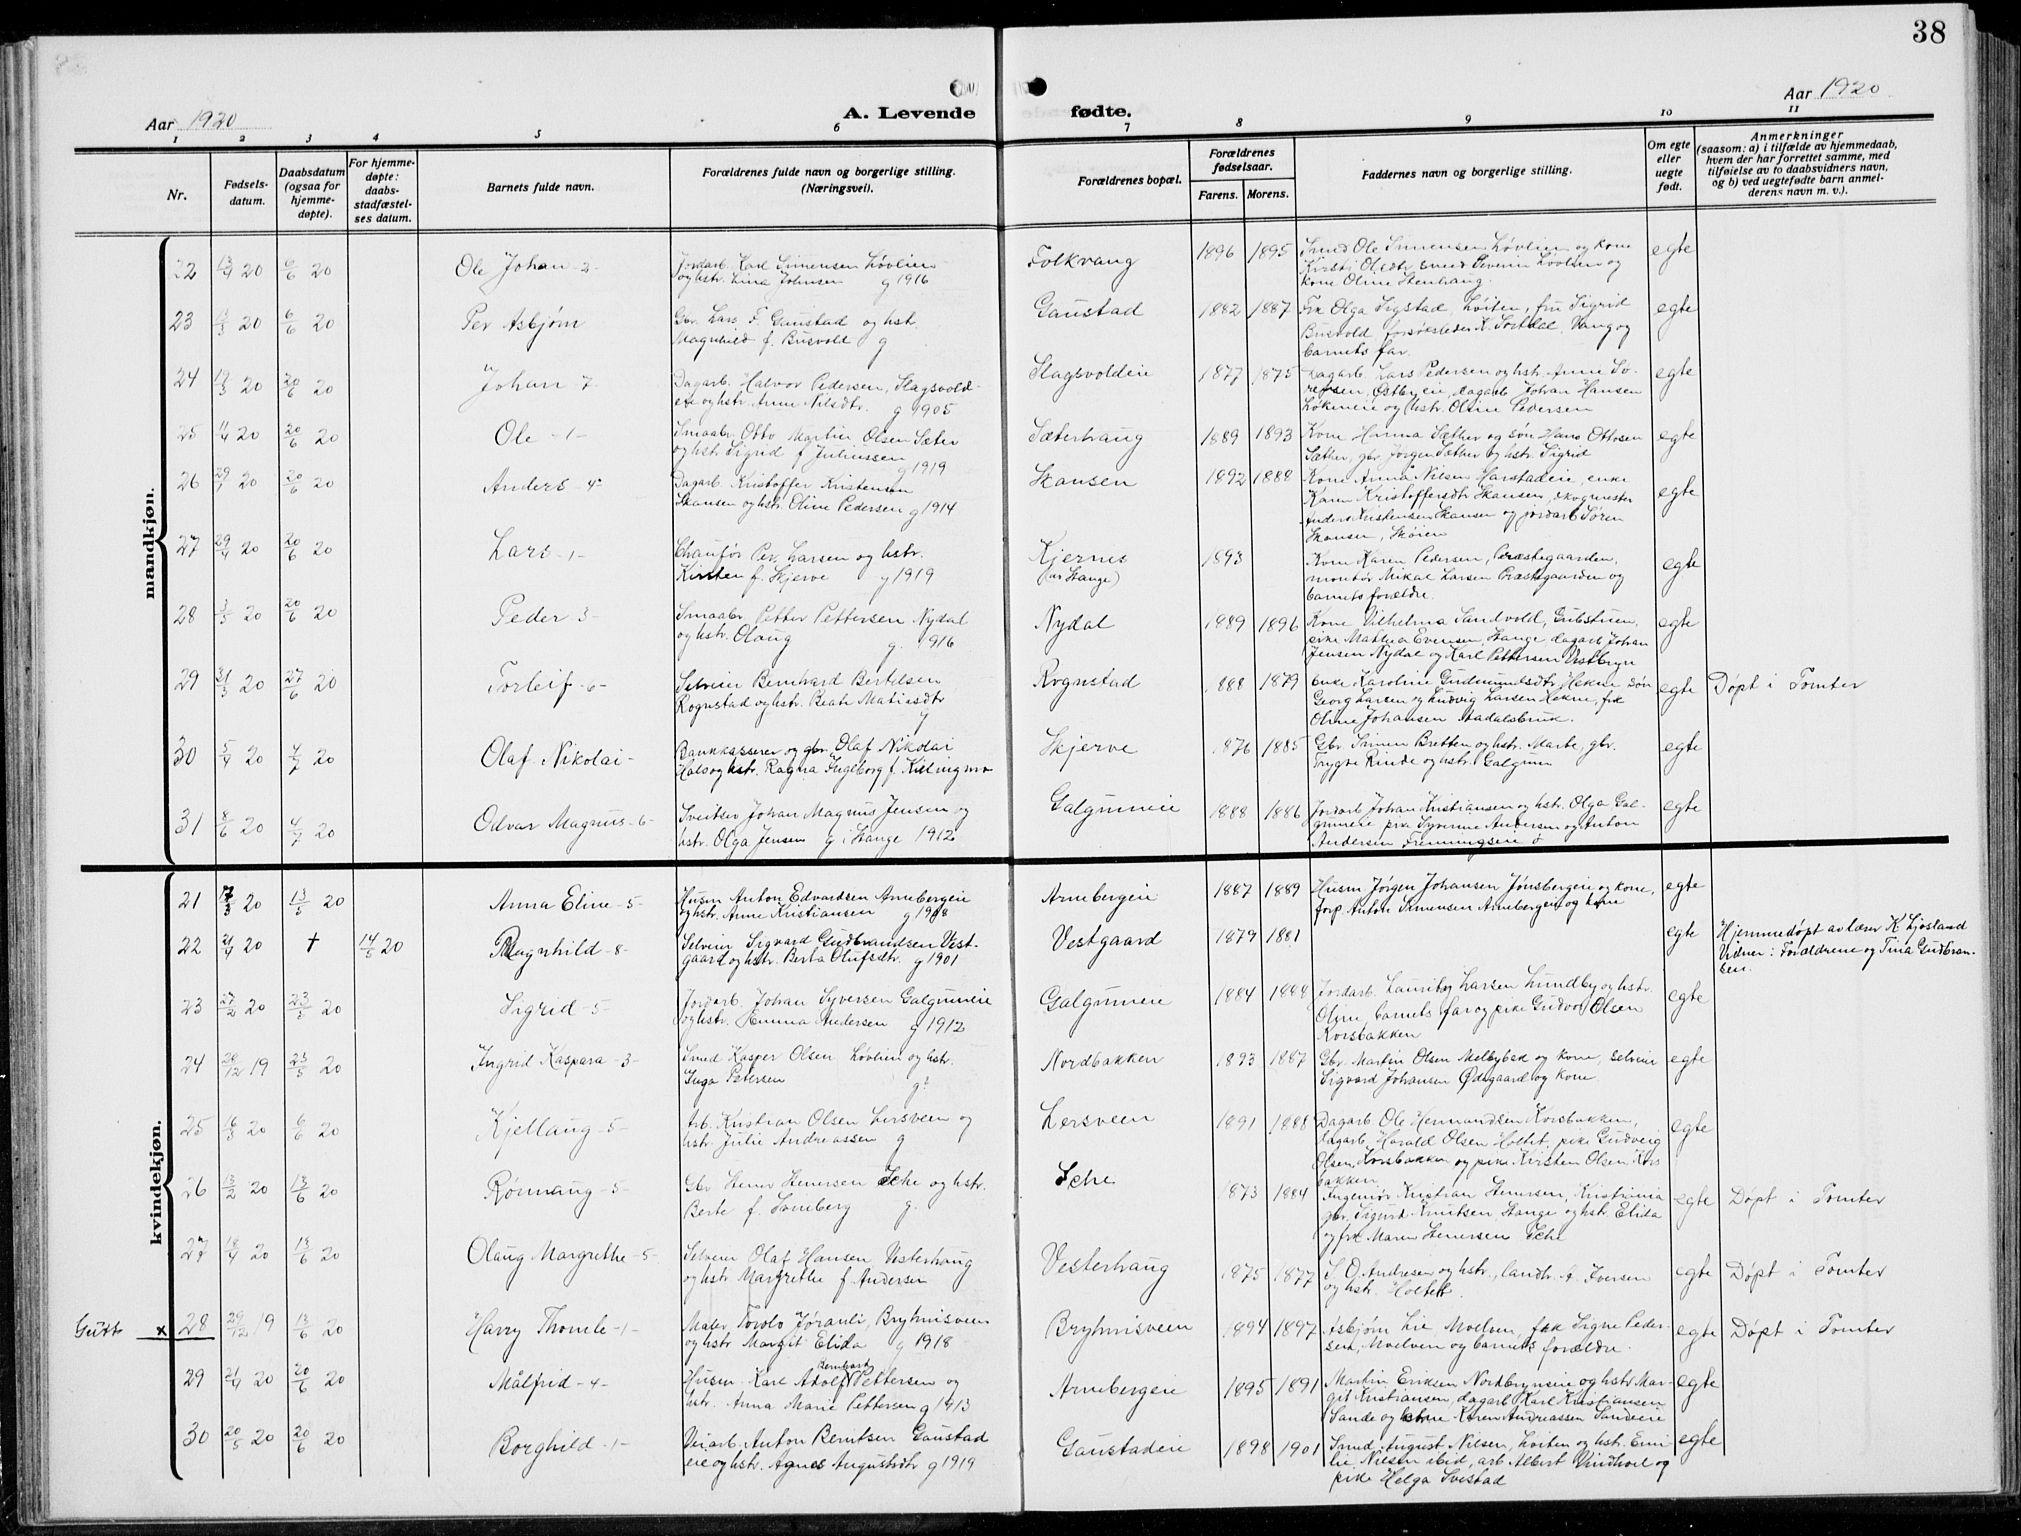 38
Aar 1920
A. Levende
fødte.
Aar 1920
1 2 3 4 5 6 7 8 9 10 11
Nr.
Fødsels-
datum.
Daabsdatum
(ogsaa for
hjemme-
døpte).
For hjemme-
døpte:
daabs-
stadfæstel-
ses datum.
Barnets fulde navn.
Forældrenes fulde navn og borgerlige stilling.
(Næringsvei).
Forældrenes bopæl.
Forældrenes
fødselsaar.
Farens. Morens.
Faddernes navn og borgerlige stilling.
Om egte
eller
uegte
født.
Anmerkninger
(saasom: a) i tilfælde av hjemmedaab,
hvem der har forrettet samme, med
tilføielse av to daabsvidners navn,
og b) ved uegtefødte barn anmel-
derens navn m. v.).
mandkjøn.
22 13/4 20 6/6 20 Ole Johan -2-
Jordarb. Karl Simensen Løvlien
og hstr. Lina Johnsen g 1916
Folkvang 1896 1895
Smed Ole Simensen Løvlien og kone
Kirsti Olsdtr smed Severin Løvlien og
kone Oline Stenhaug.
egte
23 20 6/6 20 Per Asbjørn
Gbr. Lars F. Gaustad og hst.
Magnhild f. Busvold g
Gaustad 1882 1887
Frk Olga Sigstad, Løiten, fru Sigrid
Busvold, forsøksleder K. Vang og
barnets far.
egte
24 19/3 20 20/6 20 Johan -7-
Dagarb. Halvor Pedersen, Slagsvold-
eie og hstr. Anne Nilsdtr. g 1905
Slagsvoldeie 1877 1875
Dagarb. Lars Pedersen og hstr. Anne So-
rensen, Østbyeie, dagarb Johan Hansen
Løkeneie og hstr. Oline Pedersen
egte
25 11/4 20 20/6 20 Ole -1-
Smaabr. Otto Martin Olsen Sæter
og hstr Sigrid f Juliussen
g 1919
Sæterhaug 1889 1893
Kone Hanna Sæther og søn Hans Ottosen
Sæther, gbr Jørgen Sæther og hstr. Sigrid
egte
26 29/1 20 20/6 20 Anders -4-
Dagarb. Kristoffer Kristensen
Skansen og hstr. Eline Pedersen g 1914
Skansen 1892 1888
Kone Anna Nilsen Harstadeie, enke
Karen Kristoffersdtr Skansen, skogmester
Anders Kristensen Skansen og jordarb Søren
Skansen, Skøien
egte
27 29/4 20 20/6 20 Lars -1-
Chaufør Per Larsen og hstr.
Kirsten f. Skjerve g 1919
Kjernes
(av Stange)
1893
Kone Karen Pedersen, Præstegaarden,
montør Mikal Larsen Præstegaarden og
barnets forældre.
egte
28 3/5 20 20/6 20 Peder -3-
Smaabr. Petter Pettersen Nydal
og hstr. Olaug g. 1916
Nydal 1889 1896
Kone Vilhelma Sandvold, Gubstuen,
pike Mathea Evensen, Stange dagarb Johan
Jensen Nydal og Karl Pettersen Vestbryn
egte
29 31/3 20 27/6 20 Torleif -6-
Selveier Bernhard Bertelsen
Rognstad og hstr. Beate Matiasdtr
g
Rognstad 1888 1879
Enke Karoline Gudmundsdtr Hekne søn
Georg Larsen og Ludvig Larsen Hekne, frk
Oline Johansen Aadalsbruk.
egte Døpt i Tomter
30 5/4 20 4/7 20 Olaf Nikolai -
Bankkasserer og gbr. Olaf Nikolai
Hals og hstr. Ragna Ingeborg f. Killingmo
Skjerve 1876 1885
Gbr Simen Bretten og hstr. Marte, gbr.
Trygve Rinde og hstr. Galgum
egte
31 8/6 20 4/7 20 Odvar Magnus -6-
Sveitser Johan Magnus Jensen og
hstr. Olga Jensen g i Stange 1912
Galgumeie 1888 1886
Jordarb Johan Kristiansen og hstr. Olga Gal-
gumeie pike Syverine Andersen og Anton
Andersen Fremmingseie
egte
kvindekjøn.
21 17/3 20 13/5 20 Anna Eline -5-
Husm Anton Edvardsen Arnebergeie
og hstr. Anne Kristiansen g 1908
Arnebergeie 1887 1889
Husm Jørgen Johansen Jønsbergeie og kone,
forp. Anton Simensen Arnebergeie og kone
egte
22 21/4 20 † 14/5 20 Ragnhild -8-
Selveier Sigvard Gudbrandsen Vest-
gaard og hstr. Berta Olufsdtr. g 1901
Vestgaard 1879 1881
egte
Hjemmedøpt av lærer K Ljosland
Vidner: Forældrene og Tina Gudbran-
sen.
23 27/2 20 23/5 20 Sigrid -5-
Jordarb. Johan Syversen Galgumeie
og hstr. Emma Andersen g 1912
Galgumeie 1884 1888
Jordarb. Lauritz Larsen Lundby og hstr.
Oline, barnets far og pike Gudvor Olsen
Korsbakken
egte
24 20/12 19 23/5 20 Ingrid Kaspara -3-
Smed Kasper Olsen Løvlien og hstr.
Inga Petersen g?
Nordbakken 1893 1887
Gbr. Martin Olsen Melbybak og kone, selveier
Sigvard Johansen Ødegaard og kone.
egte
25 16/3 20 6/6 20 Kjellaug -5-
Arb. Kristian Olsen Lersveen og
hstr. Julie Andreassen g
Lersveen 1891 1888
Dagarb. Ole Hermandsen Korsbakken,
dagarb. Harald Olsen Holtet, pike Gudveig
Olsen, Korsbakken og pike Kirsten Olsen Kors
bakken
egte
26 13/2 20 13/6 20 Rønnaug -5-
Gbr Einer Henersen Sche og hstr.
Berte f. Svenberg g.
Sche 1873 1884
Ingeniør Kristian Henersen, Kristiania
gbr. Sigurd Knutsen, Stange og hstr. Elida
og frk Maren Henersen Sche
egte Døpt i Tomter
27 18/4 20 13/6 20 Olaug Margrethe -5-
Selveier Olaf Hansen Vesterhaug
og hstr Margrethe f. Andersen
Vesterhaug 1875 1877
S. O. Andresen og hstr., landh. A. Iversen
og hstr. Holtet.
egte Døpt i Tomter
Gutt x 28 29/12 19 13/6 20 Harry Thomle -1-
Maler Torolv Jøranli, Bryhnisveen
og hstr Margit Elida g 1918
Bryhnisveen 1894 1897
Asbjørn Lie Moelven, frk Signe Peder-
sen, Moelven og barnets forældre.
egte Døpt i Tomter
29 21/4 20 20/6 20 Målfrid -4-
Bernhard
Husm. Karl Adolf Pettersen og
hstr. Anna Marie Pettersen g 1913
Arnebergeie 1895 1891
Martin Eriksen Nordbryneie og hstr Mar-
git Kristiansen, dagarb Karl Kristiansen
Sande og kone Karen Andreassen Sandeeie
egte
30 20/5 20 20/6 20 Borghild -1-
Veiarb. Anton Berntsen Gaustad
eie og hstr. Agnes Augustdtr g 1919
Gaustadeie 1898 1901
Smed August Nilsen, Løiten og hstr. Emi-
lie Nilsen ibid, arb Albert Vindhol og
pike Helga Svestad
egte